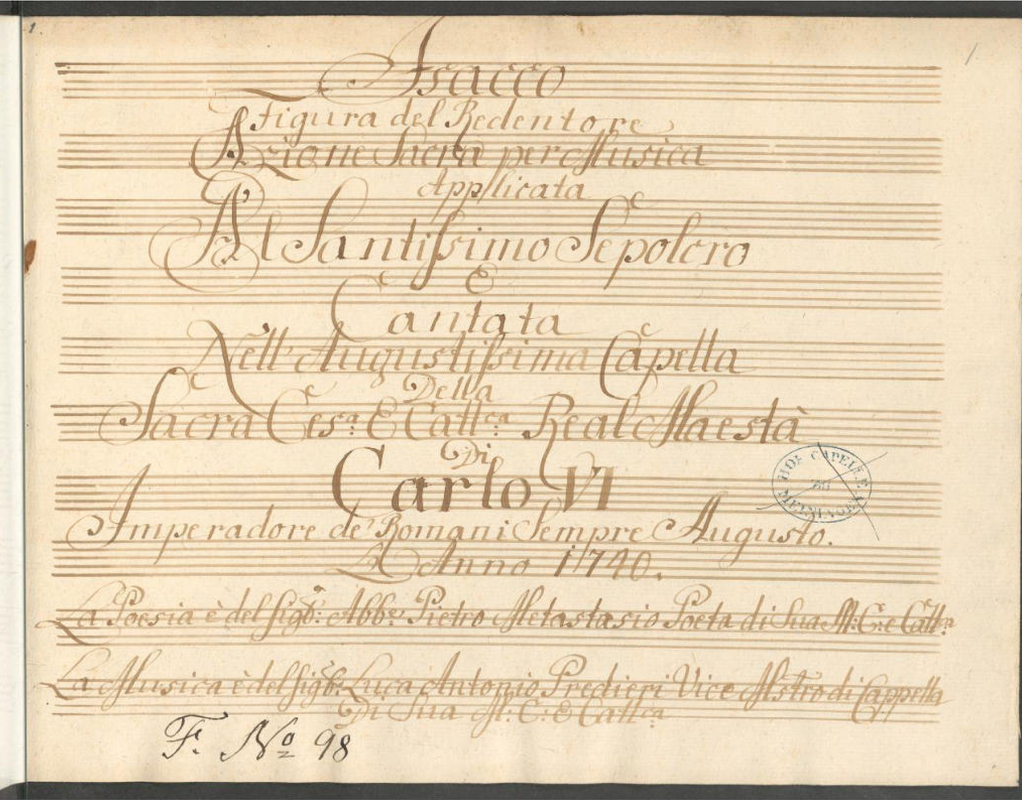 1.
1
Isacco
Figura del Redentore
Azione Sacra per Musica
Applicata
Al Santissimo Sepolcro
E
Cantata
Nell' Augustissima Capella
Della
Sacra Ces.ª E Catt.ca Real Maestà
Di
Carlo VI
Imperadore de' Romani Sempre Augusto.
L'Anno 1740.
La Poesia è del Sig.r Abb.e Pietro Metastasio Poeta di Sua M: C: e Catt.ca
La Musica è del Sig.r Luca Antonio Predieri Vice Mstro di Cappella
Di Sua M: C: E Catt.ca
HOF CAPELLE
ZU
MEININGEN
F. No 98